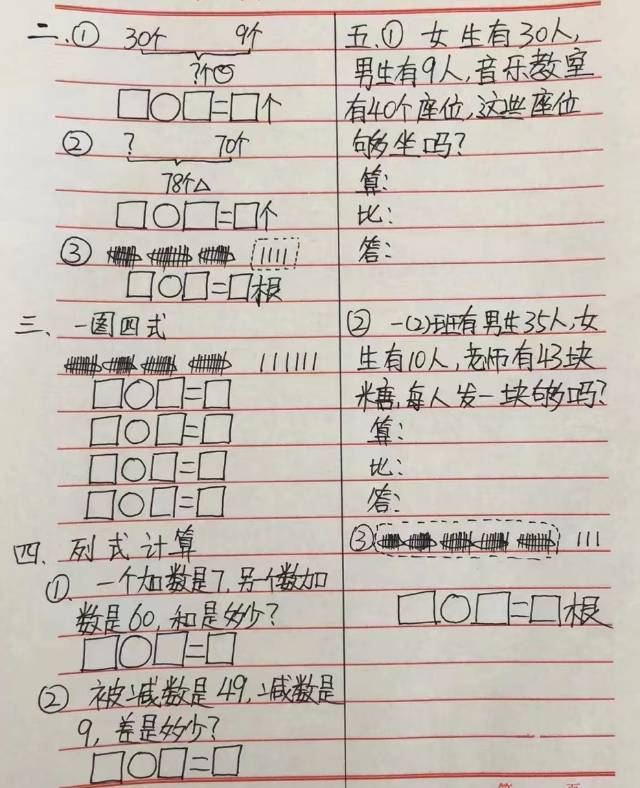 二、① 30个 9个
?个
□○□=□个
② ? 70个
78个△
□○□=□个
③
□○□=□根
三、一图四式
□○□=□
□○□=□
□○□=□
□○□=□
四、列式计算
①、一个加数是7,另一个数加
数是60,和是多少?
□○□=□
② 被减数是49,减数是
9,差是多少?
□○□=□
五、① 女生有30人,
男生有9人,音乐教室
有40个座位,这些座位
够坐吗?
算:
比:
答:
② 一(2)班有男生35人,女
生有10人,老师有43块
糖,每人发一块够吗?
算:
比:
答:
③
□○□=□根